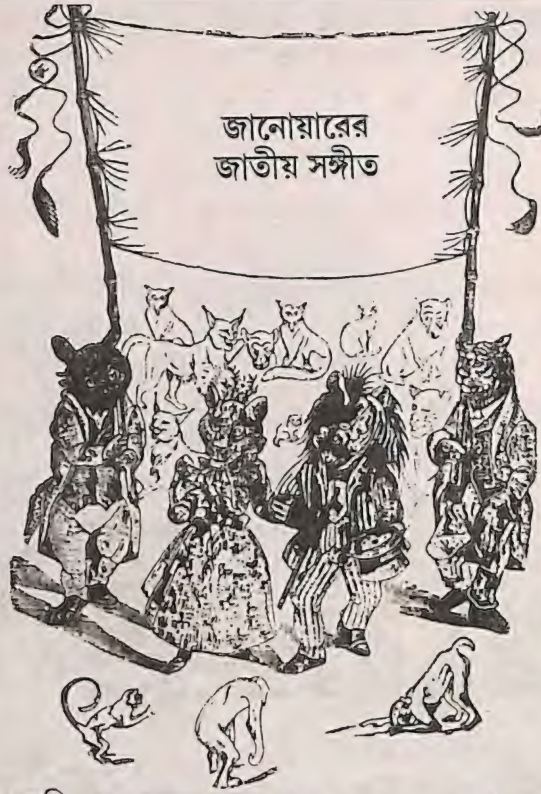 জানোয়ারের
জাতীয় সঙ্গীত